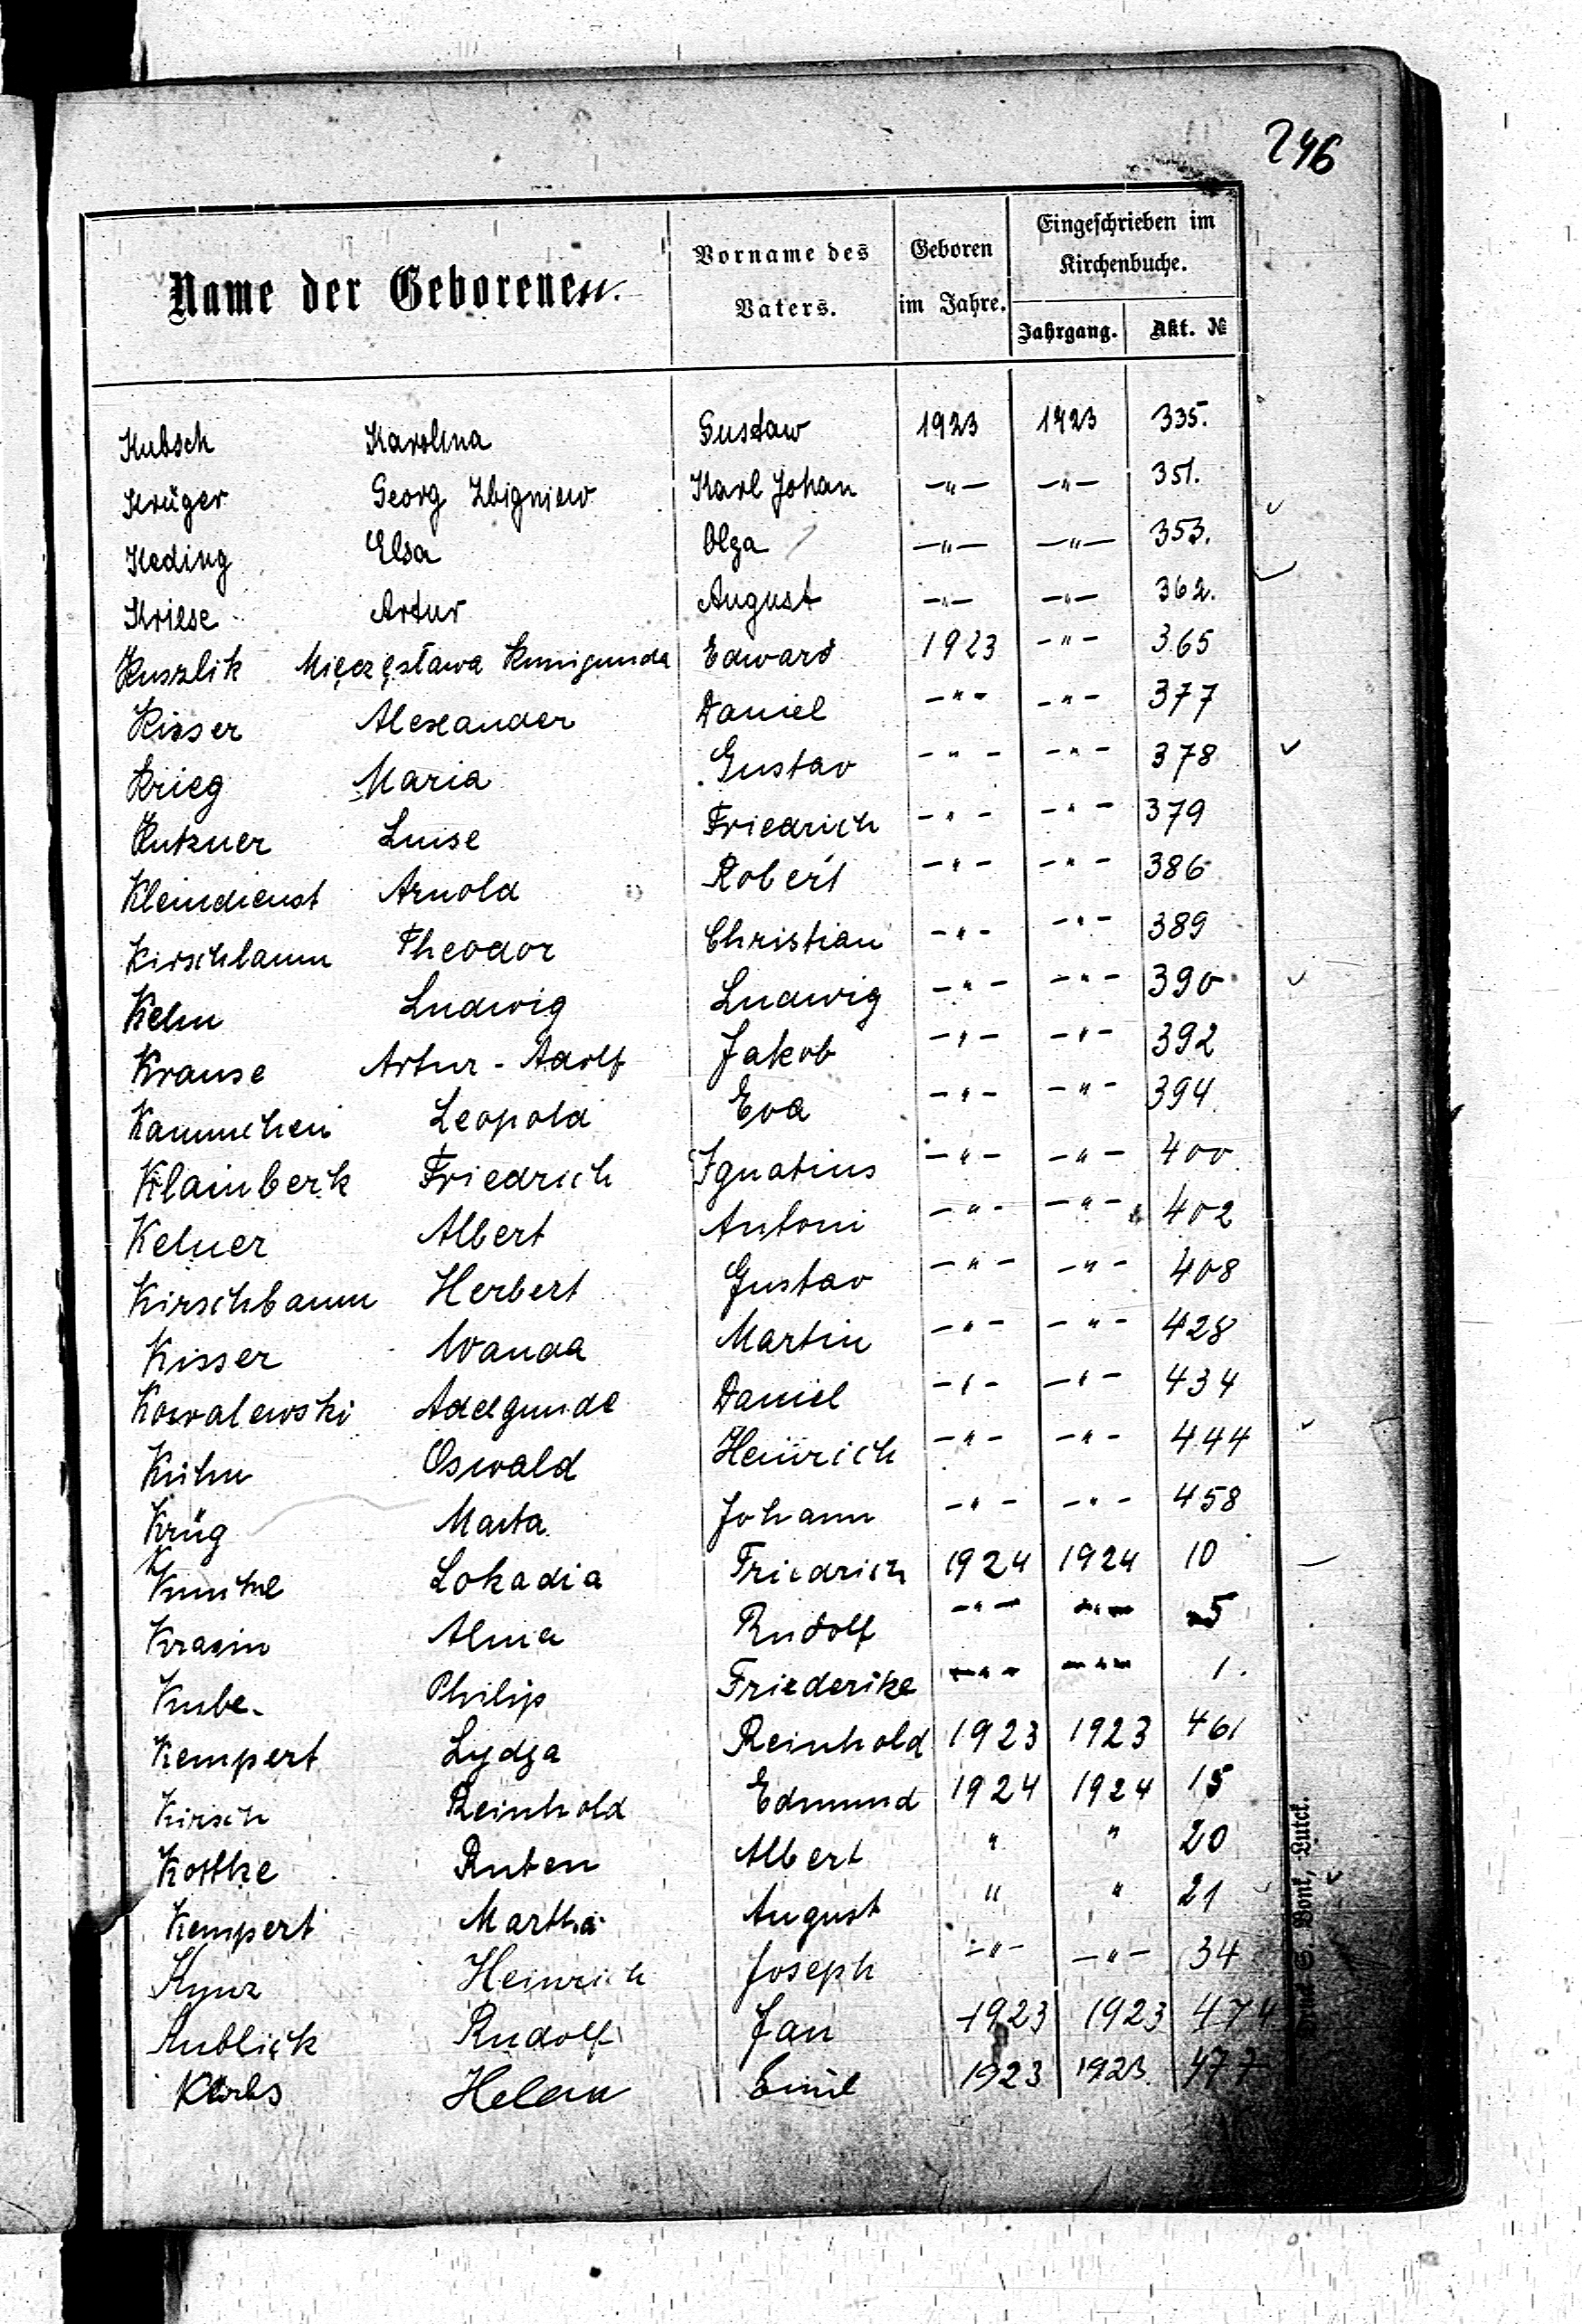 246
Name der Geborenen.
Vorname des Vaters.
Geboren im Jahre.
Eingeschrieben im Kirchenbuche.
Jahrgang. Akt. №
Kubsch Karolina Gustaw 1923 1923 335.
Krüger Georg Zbigniew Karl Johan —"— —"— 351.
Keding Elsa Olga —"— —"— 353.
Kriese Artur August —"— —"— 362.
Kuszlik Mięczęsława Kunigunda Edward 1923 -"- 365
Kisser Alexander Daniel -"- -"- 377
Krieg Maria Gustav -"- -"- 378
Kutzner Luise Friedrich -"- -"- 379
Kleindienst Arnold Robert -"- -"- 386
Kirschbaum Theodor Christian -"- -"- 389
Kelm Ludwig Ludwig -"- -"- 390
Krause Artur-Adolf Jakob -"- -"- 392
Leopold Eva -"- -"- 394
Klainberk Friedrich Ignatius -"- -"- 400
Kelner Albert Antoni -"- -"- 402
Kirschbaum Herbert Gustav -"- -"- 408
Kisser Wanda Martin -"- -"- 428
Kowalewski Adelgunde Daniel -"- -"- 434
Kühn Oswald Heinrich -"- -"- 444
Krüg Marta Johann -"- -"- 458
Lokadia Friedrich 1924 1924 10
Alma Rudolf -"- -"- 5
Kube. Philip Friederike -"- -"- 1.
Kempert Lydja Reinhold 1923 1923 461
Kirsch Reinhold Edmund 1924 1924 15
Kottke Ruben Albert " " 20
Kempert Martha August " " 21
Heinrich Joseph -"- -"- 34
Kublick Rudolf Jan 1923 1923 474
Emil 1923 1923. 477